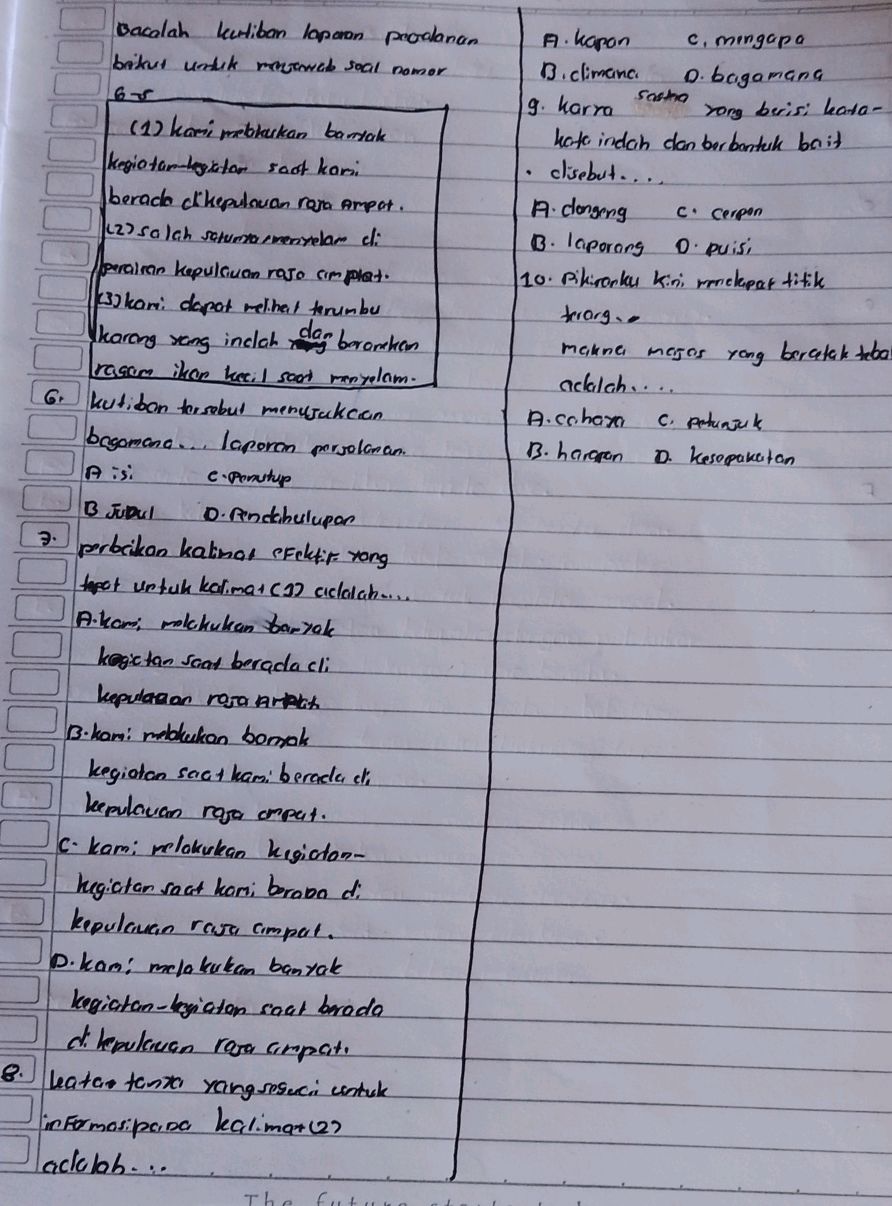 Bacalah kutiban laporan perjalanan
berikut untuk menjawab soal nomor
6-8
(1) kami melakukan banyak
kegiatan-kegiatan saat kami
berada di kepulauan raja Ampat.
(2) salah satunya menyelam di
perairan kepulauan raja ampat.
(3) kami dapat melihat terumbu
karang yang indah dan beranekan
ragam ikan kecil saat menyelam.
6. kutiban tersebut menunjukkan
bagamana... laporan perjalanan.
A isi C. Penutup
B Judul D. Pendahulupan
7. perbaikan kalimat efektif yang
tepat untuk kalimat (1) adalah....
A. kami melakukan banyak
kegiatan saat berada di
kepulauan raja Ampat
B. kami melakukan banyak
kegiatan saat kami berada di
kepulauan raja ampat.
C. kami melakukan kegiatan-
kegiatan saat kami berada di
kepulauan raja ampat.
D. kami melakukan banyak
kegiatan-kegiatan saat berada
di kepulauan raja ampat.
8. kata tanya yang sesuai untuk
informasi pada kalimat (2)
adalah....
A. kapan C. mengapa
B. dimana D. bagamana
9. karya sastra yang berisi kata-
kata indah dan berbentuk bait
disebut....
A. dongeng C. cerpen
B. laporang D. puisi
10. Pikiranku kini mendapat titik
terang.
makna majas yang bercetak teba
adalah....
A. cahaya C. petunjuk
B. harapan D. kesepakatan
The future